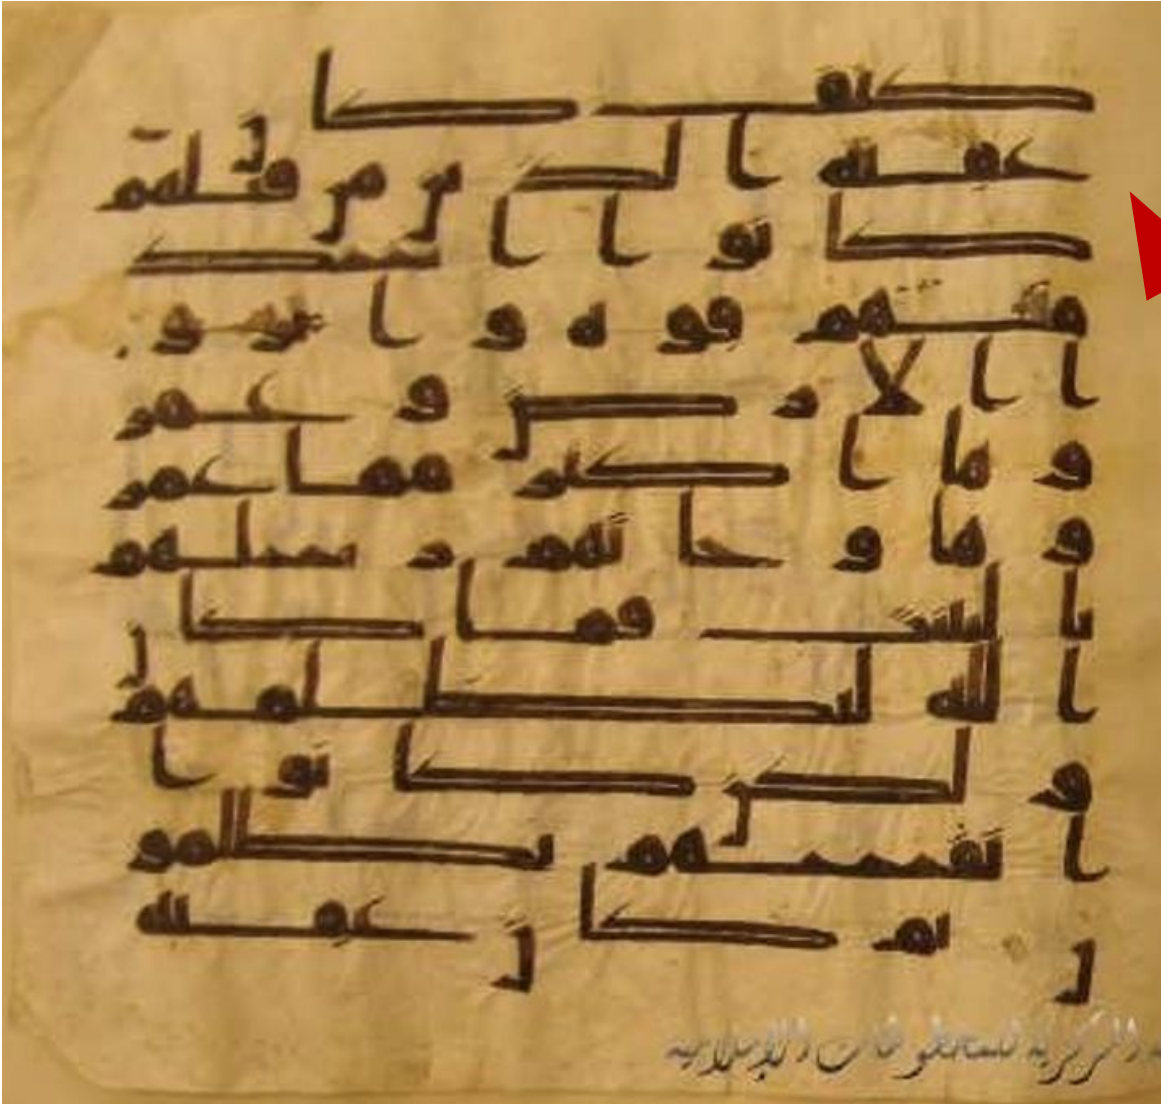 كيف كان
عقبه الذين من قبلهم
كانوا اشد
منهم قوه واثرو
ا الارض وعمر
وها اكثر مما عمر
وها وجاتهم رسلهم
بالبينت فما كان
الله ليظلمهم
ولكن كانوا
انفسهم يظلمو
ن ثم كان عقبه
المركزية للمخطوطات الإسلامية